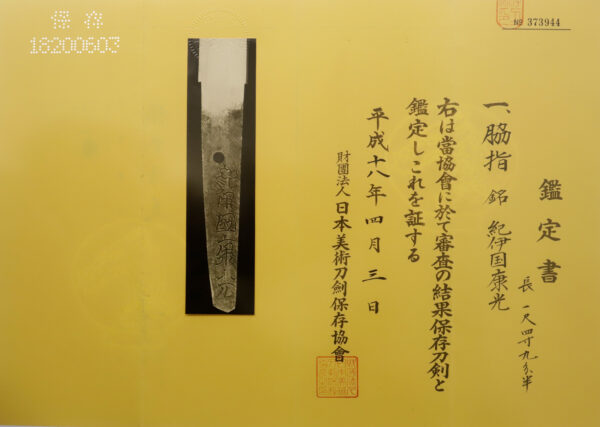 保存
18200603
№ 373944
鑑定書
一、脇指 銘 紀伊国康光
長一尺四寸九分半
右は當協會に於て審査の結果保存刀剣と
鑑定しこれを証する
平成十八年四月三日
財團法人日本美術刀劍保存協會
國康光